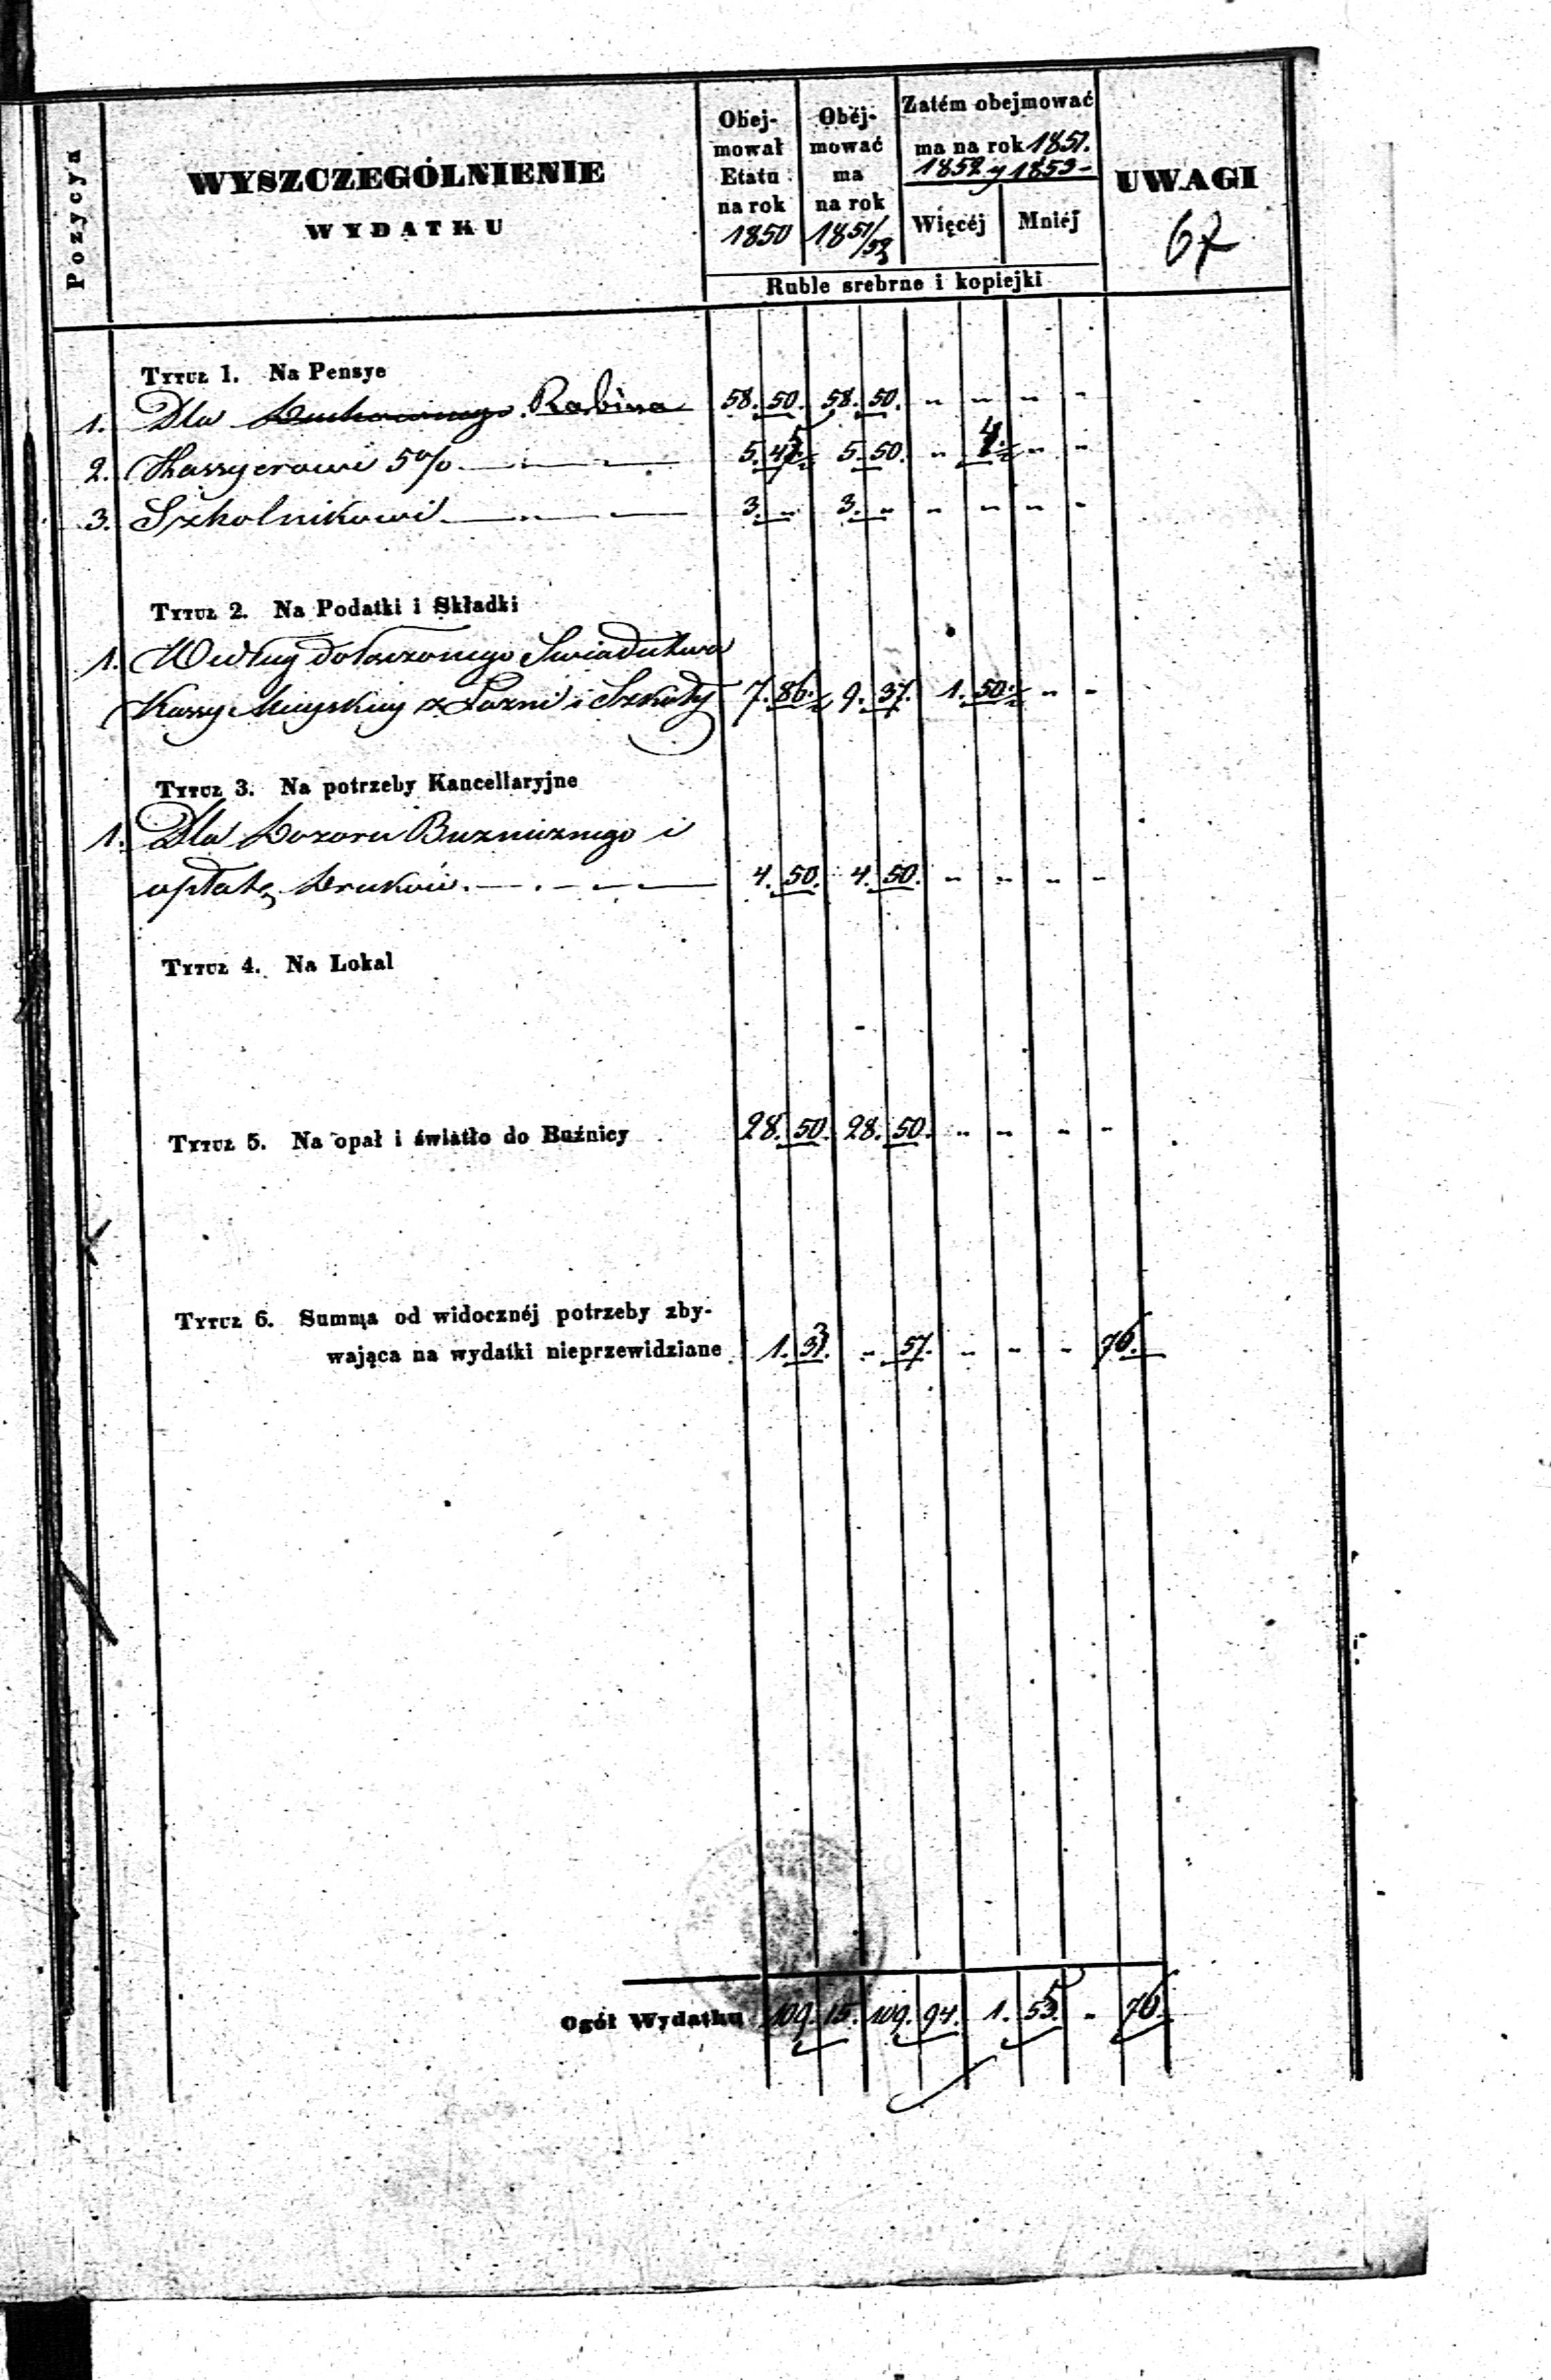 Pozycya
WYSZCZEGÓLNIENIE
WYDATKU
Obej-
mował
Etatu
na rok
1850
Obej-
mować
ma
na rok
1851/53
Zatém obejmować
ma na rok 1851.
1852 y 1853 -
Więcéj
Mniéj
UWAGI
67
Ruble srebrne i kopiejki
TYTUŁ 1. Na Pensye
1. Dla Duchownego Rabina 58. 50. 58. 50. " " " "
2. Kassyerowi 5% 5. 50. " " "
3. Szkolnikowi 3. " 3. " " " " "
TYTUŁ 2. Na Podatki i Składki
1. Według dołączonego Swiadectwa
Kassy Mieyskiey z Łazni i Szkoły 7. 86.½ 9. 37. 1. 50.½ " "
TYTUŁ 3. Na potrzeby Kancellaryjne
1. Dla Dozoru Buznicznego i
opłatę Druków. 4. 50. 4. 50. " " " "
TYTUŁ 4. Na Lokal
TYTUŁ 5. Na opał i światło do Buźnicy 28. 50. 28. 50. " " " "
TYTUŁ 6. Summa od widocznéj potrzeby zby-
wająca na wydatki nieprzewidziane 1. " 57. " " " 76.
Ogół Wydatku 109. 15. 109. 94. 1. 55. " 76.